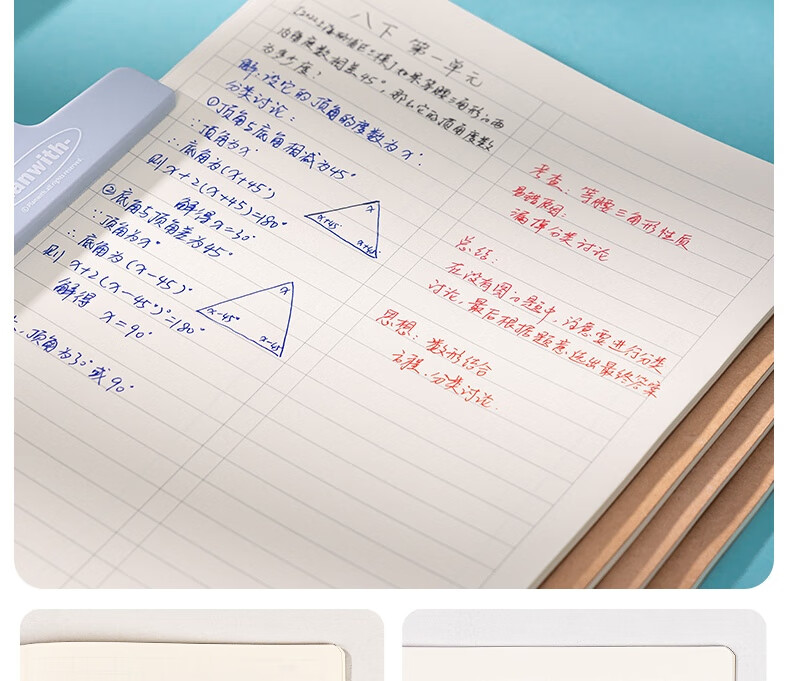 八下 第一单元
如果等腰三角形的两
内角度数相差45°,那么它的顶角度数
为多少度?
解:设它的顶角的度数为x°.
分类讨论:
①顶角与底角相减为45°
∵顶角为x°
∴底角为(x+45°)
则x+2(x+45)=180°
解得x=30°
②底角与顶角差为45°
∵顶角为x°
∴底角为(x-45)°
则 x+2(x-45°)°=180°
解得
x=90°
顶角为30°或90°
x
x+45
x+45°
x
x-45°
x-45°
考查:等腰三角形性质
易错原因:
漏得分类讨论
总结:
在没有图的题中,注意要进行分类
讨论,最后根据题意选出最终答案
思想:数形结合
方程、分类讨论.
anwith
All rights reserved